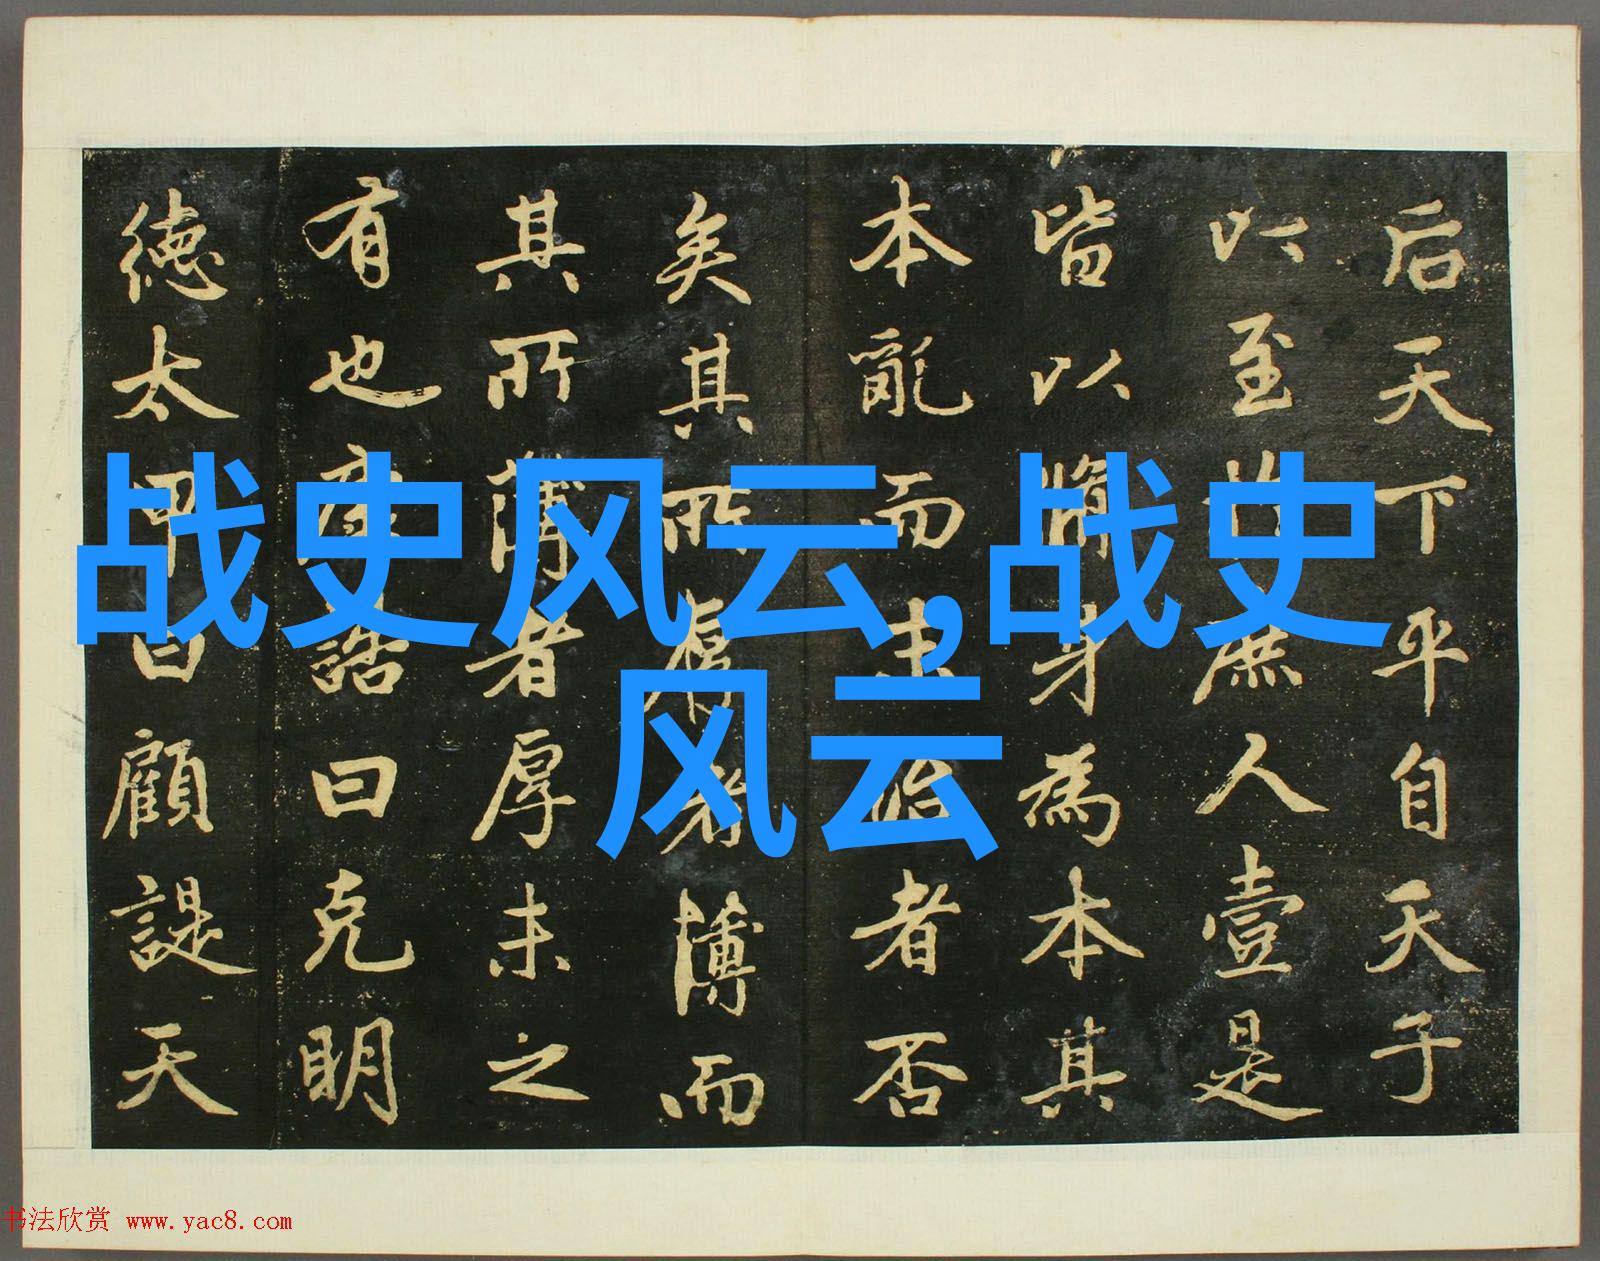 后天下平自天子
以至於庶人壹是
皆以脩身為本其
本亂而末治者否
矣其所厚者薄而
其所薄者厚未之
有也康誥曰克明
徳太甲曰顧諟天
战史风云,战史
风云
书法欣赏 www.yac8.com